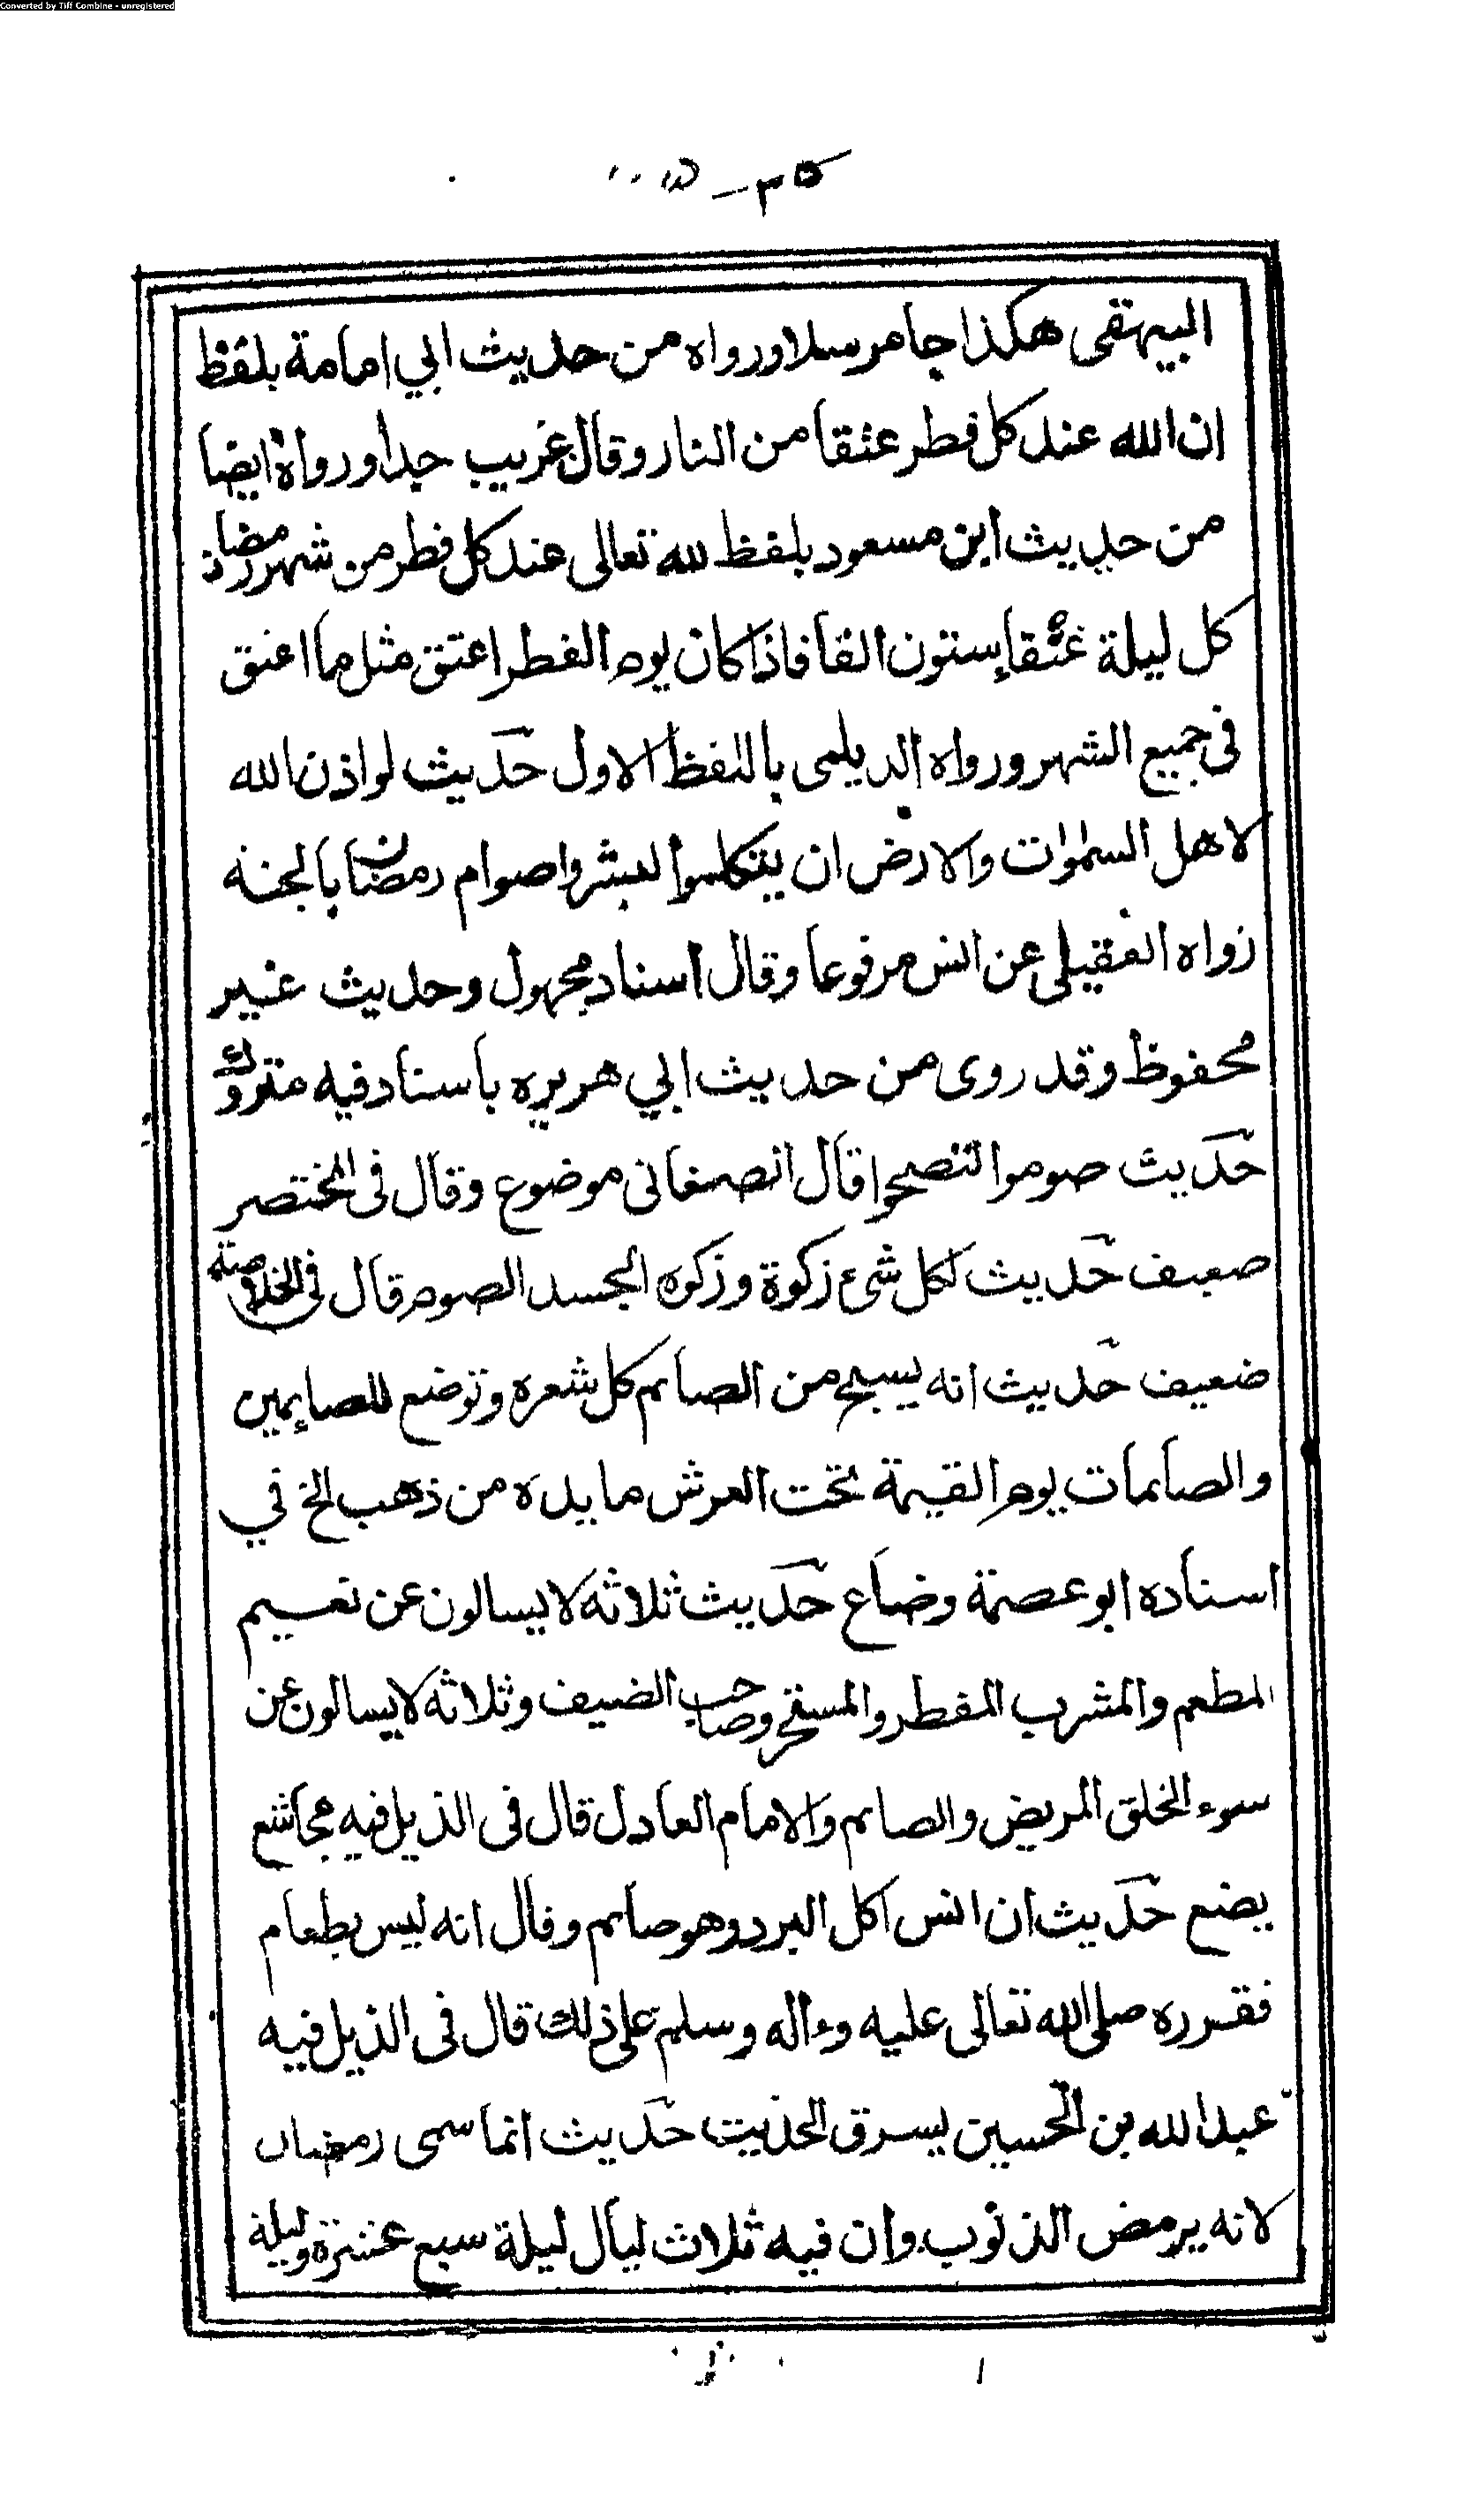 Converted by Tiff Combine - unregistered
البيهقى هكذا جا مرسلا ورواه من حديث ابي امامة بلفظ
ان الله عند كل فطر عتقا من النار وقال غريب جدا ورواه ايضا
من حديث ابن مسعود بلفظ لله تعالى عند كل فطر من شهر رمضان
كل ليلة عتقا ستون الفا فاذا كان يوم الفطر اعتق مثل ما اعتق
فى جميع الشهر ورواه الديلمى باللفظ الاول حديث لو اذن الله
لاهل السموات والارض ان يتكلموا لبشروا صوام رمضان بالجنة
رواه العقيلى عن انس مرفوعا وقال اسناد مجهول وحديث غير
محفوظ وقد روى من حديث ابي هريره باسناد فيه متروك
حديث صوموا تصحوا قال الصغانى موضوع وقال فى المختصر
ضعيف حديث لكل شىء زكوة وزكوه الجسد الصوم قال فى الخلاصة
ضعيف حديث انه يسبح من الصائم كل شعره وتوضع للصايمين
والصائمات يوم القيمة تحت العرش مايدة من ذهب الخ في
اسناده ابو عصمة وضاع حديث ثلاثة لا يسالون عن نعيم
المطعم والمشرب المفطر والمتسحر وصاحب الضيف وثلاثة لا يسالون عن
سوء الخلق المريض والصائم والامام العادل قال فى الذيل فيه مجاشع
يضع حديث ان انس اكل البرد وهو صائم وقال انه ليس بطعام
فقرره صلى الله تعالى عليه وءاله وسلم على ذلك قال فى الذيل فيه
عبد الله بن الحسين يسرق الحديث حديث انما سمى رمضان
لانه يرمض الذنوب وان فيه ثلاث ليال ليلة سبع عشرة وليلة